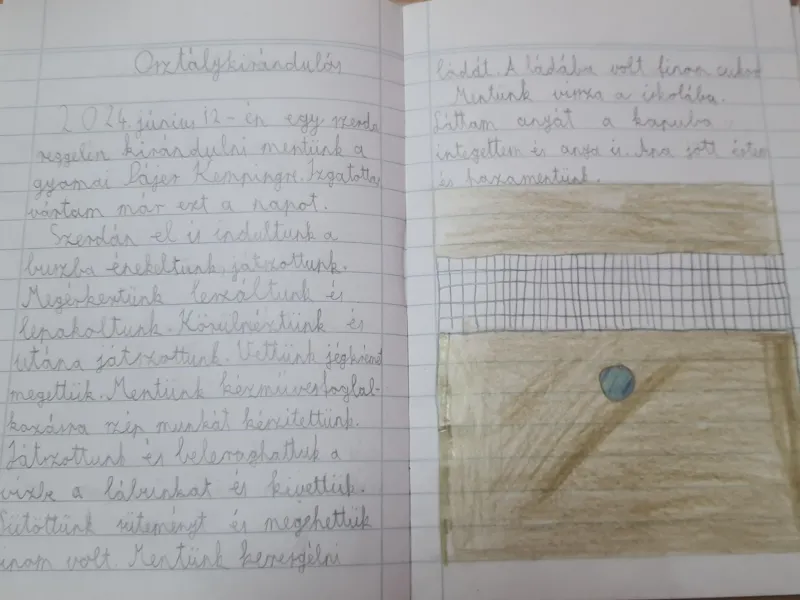 Osztálykirándulás
2024. június 12-én egy szerda
reggelen kirándulni mentünk a
gyomai Páger Kempingre. Izgatottan
vártam már ezt a napot.
Szerdán el is indultunk a
buszba énekeltünk, játszottunk.
Megérkeztünk leszáltunk és
lepakoltunk. Körülnéztünk és
utána játszottunk. Vettünk jégkrémet
megettük. Mentünk kézművesfoglal-
kozásra szép munkát készitettünk.
Játszottunk és belerоghattuk a
vizbe a lábunkat és kivettük.
Sütöttünk süteményt és megehettük
finom volt. Mentünk keresgélni
ládát. A ládába volt finom cukor
Mentünk vissza a iskolába.
Láttam anyát a kapuba
integettem és anya is. Apa jött értem
és hazamentünk.